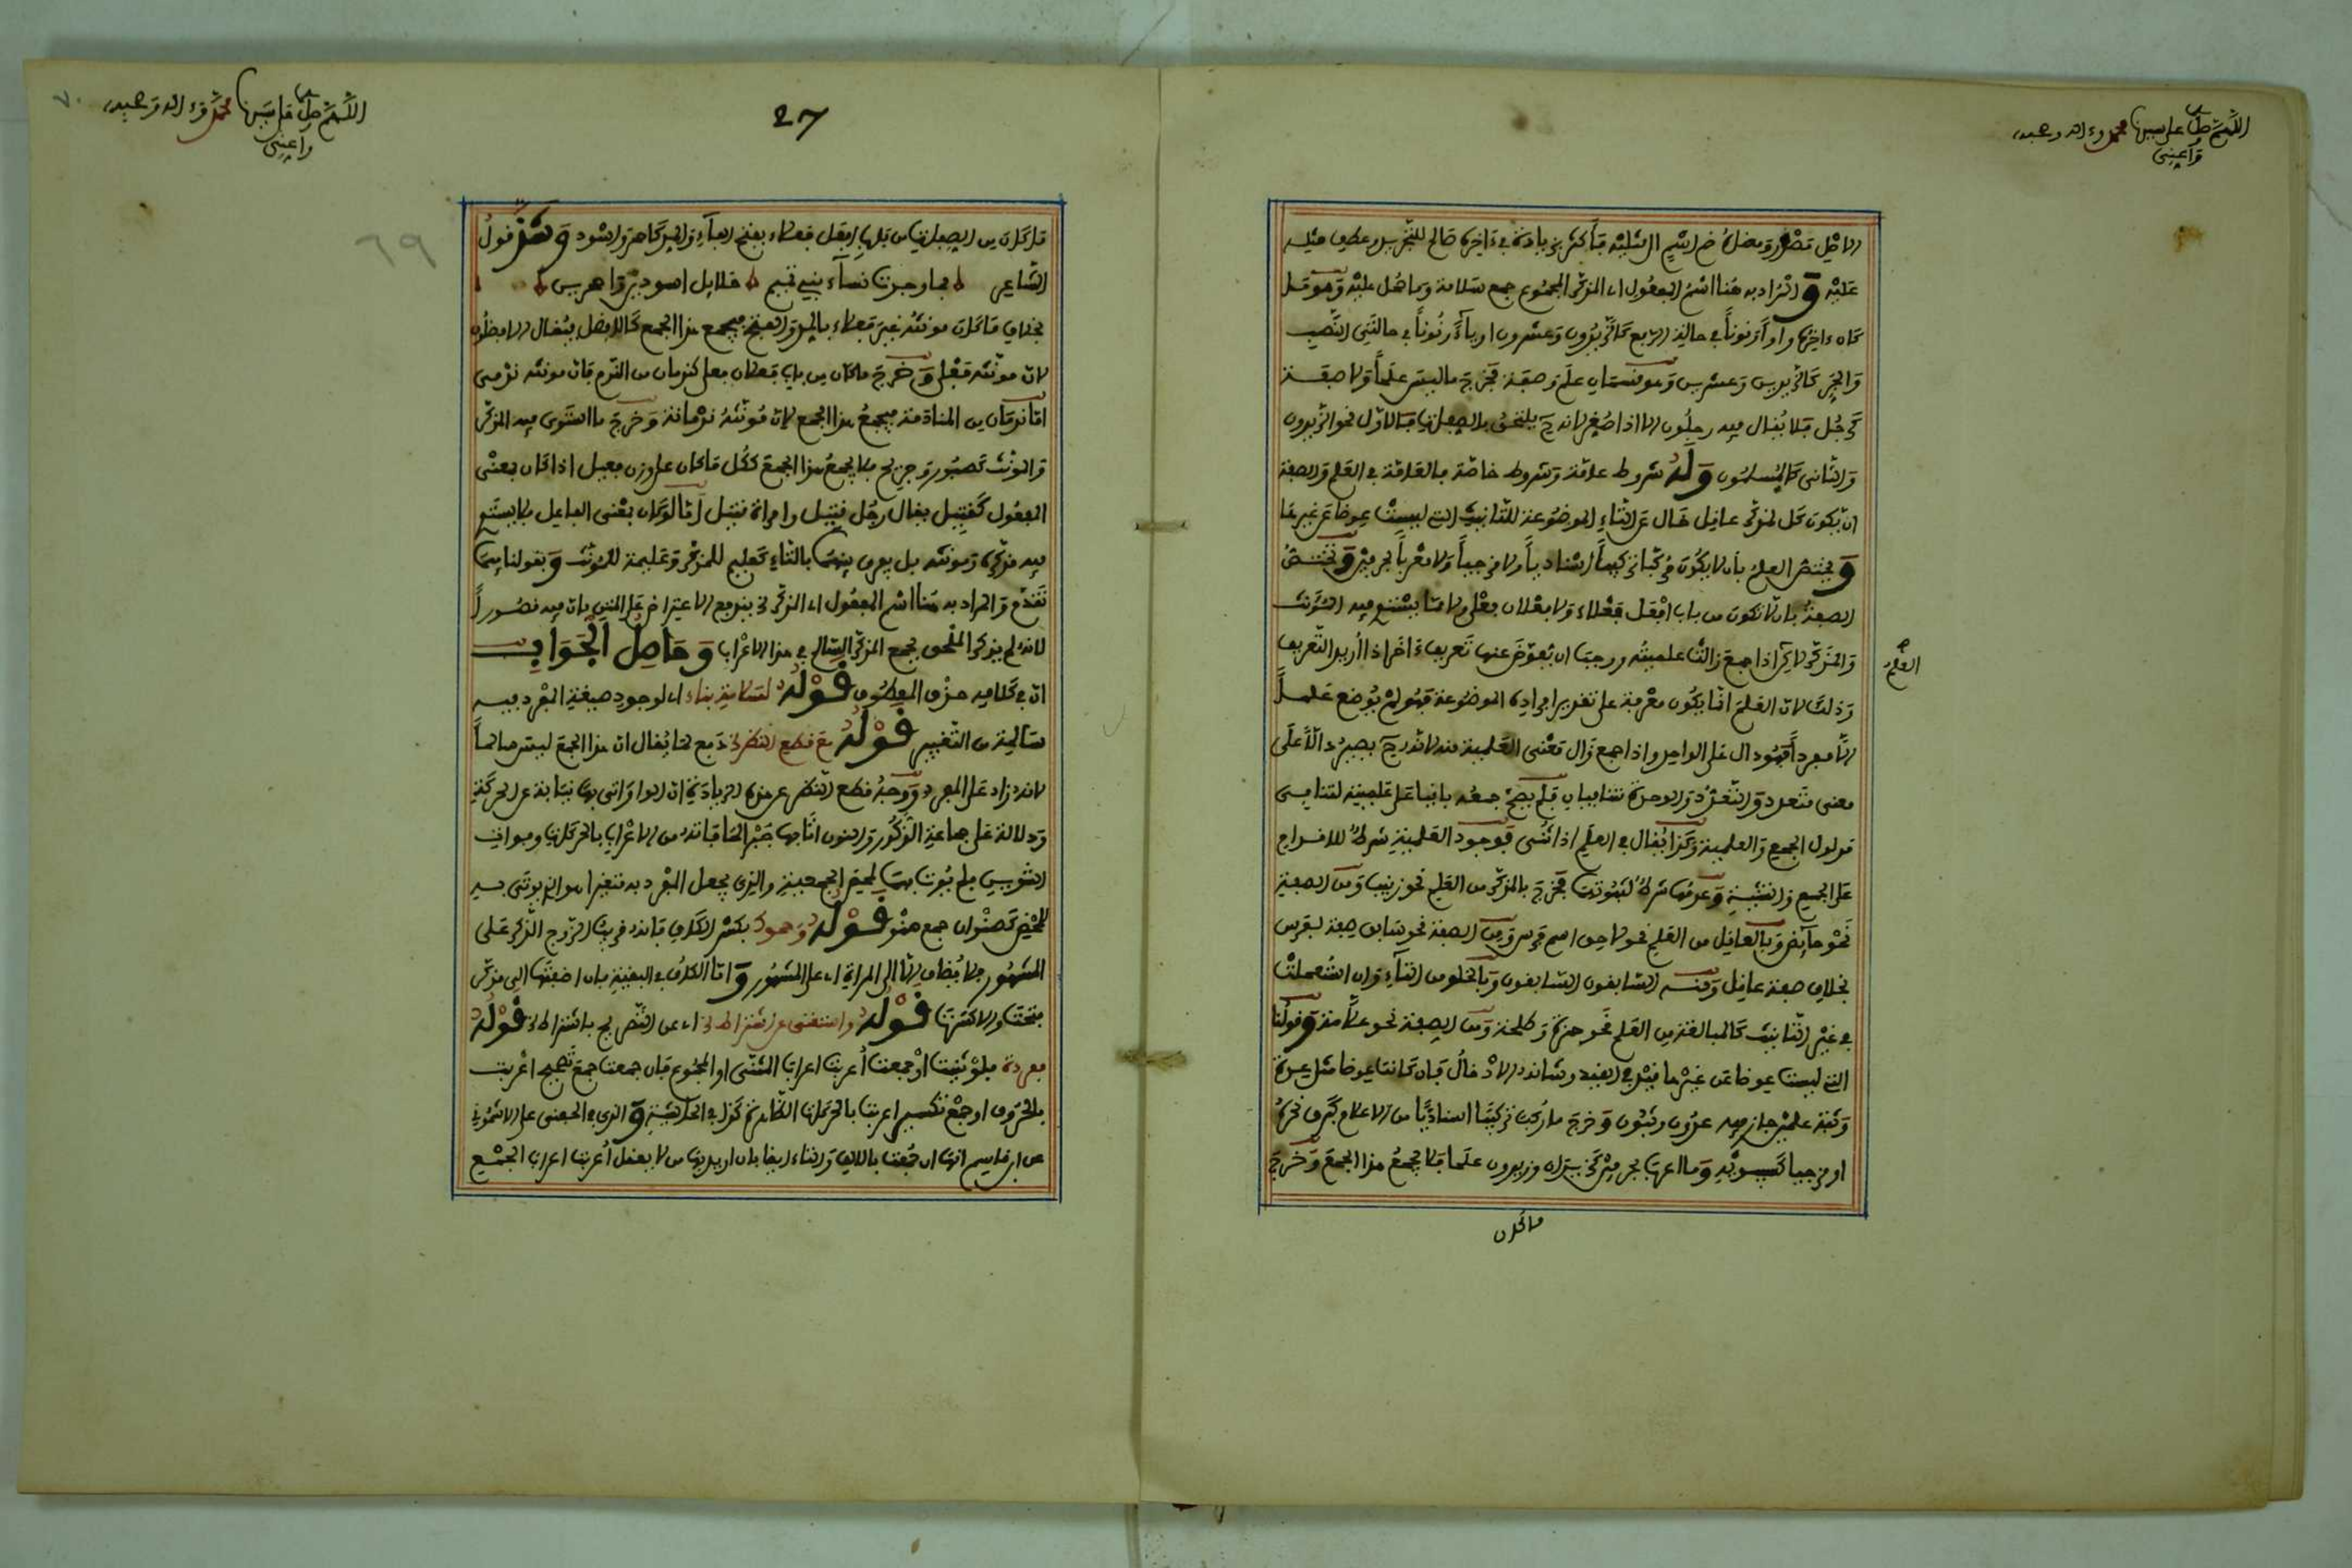 اللهم صل على سيدنا محمد وءاله وصحبه
وأعني
الاصل مصدر وفضلة ضم اسم الى مثليه فأكثر بزيادة في ءاخره صالح للتجريد وعطف مثله
عليه والمراد به هنا اسم المفعول اي المذكر المجموع جمع سلامة وما حمل عليه وهو كل
كان ءاخره واوا ونونا في حالة الرفع كالزيدون وعشرون او ياء ونونا في حالتي النصب
والجر كالزيدين وعشرين وهو قسمان علم وصفة فخرج ما ليس علما ولا صفة
كرجل فلا يقال فيه رجلون الا اذا صغر لانه ح يلتحق بالصفات فالاول نحو الزيدون
والثاني كالمسلمون وله شروط عامة وشروط خاصة فالعامة في العلم والصفة
ان يكون كل لمذكر عاقل خال عن التاء الموضوعة للتانيث التي ليست عوضا عن غيرها
ويختص العلم بان لا يكون مركبا تركيبا اسناديا ولا مزجيا ولا معربا بحرفين وتختص
الصفة بان لا تكون من باب افعل فعلاء ولا فعلان فعلى ولا مما يستوي فيه المؤنث
والمذكر لاكن اذا جمع زالت علميته ووجب ان يعوض عنها تعريف ءاخر اذا اريد التعريف
العلم
وذلك لان العلم انما يكون معرفة على تقدير افراده الموضوعة فهو لم يوضع علما
الا مفردا فهو دال على الواحد واذا جمع زال معنى العلمية منه لانه ح يصير دالا على
معنى متعدد والتعدد والوحدة متنافيان فلم يصح جمعه باقيا على علميته لتنافي
مدلول الجمع والعلمية وكذا يقال في العلم اذا ثني فوجود العلمية شرط للاقدام
على الجمع والتثنية وعدمها شرط لثبوت فخرج بالمذكر من العلم نحو زينب ومن الصفة
نحو حائض وبالعاقل من العلم نحو لاحق اسم فرس ومن الصفة نحو سابق صفة لفرس
بخلاف صفة عاقل ومنه السابقون السابقون وبالخلو من التاء وان استعملت
في غير التانيث كالمبالغة من العلم نحو حمزة وطلحة ومن الصفة نحو علامة وقولنا
التي ليست عوضا عن غيرها قيد في القيد وشانه الادخال فان كانت عوضا مثل عدة
وثبة علمين جاز فيه عدون وثبون وخرج ما ركب تركيبا اسناديا من الاعلام كبرق نحره
او مزجيا كسيبويه وما اعرب بحرفين كزيدان وزيدون علما فلا يجمع هذا الجمع وخرج
ما كان
اللهم صل على سيدنا محمد وءاله وصحبه
وأعني
27
٦٩
٧٠
ما كان من الصفات من باب افعل فعلاء بفتح الفاء والمد كاحمر واسود وشذ قول
الشاعر فما وجدت نساء بني تميم حلائل اسودين واحمرين
بخلاف ما كان مونثه غير فعلاء بالمد والفتح فيجمع هذا الجمع كالافضل يقال الافضلون
لان مونثه فعلى وخرج ما كان من باب فعلان فعلى كندمان من الندم فان مونثه ندمى
اما ندمان من المنادمة فيجمع هذا الجمع لان مونثه ندمانة وخرج ما استوى فيه المذكر
والمونث كصبور وجريح فلا يجمع هذا الجمع ككل ما كان على وزن فعيل اذا كان بمعنى
المفعول كقتيل يقال رجل قتيل وامراة قتيل اما لو كان بمعنى الفاعل فلا يستوي
فيه مذكره ومونثه بل يفرق بينهما بالتاء كعليم للمذكر وعليمة للمونث وبقولنا فيما
تقدم والمراد به هنا اسم المفعول اي المذكر الخ يندفع الاعتراض على المتن بان فيه قصورا
لانه لم يذكر الملحق بجمع المذكر السالم في هذا الاعراب وحاصل الجواب
ان في كلامه حذف المعطوف قوله لسلامة بناء اي لوجود صيغة المفرد فيه
سالمة من التغيير قوله مع قطع النظر الخ دفع لما يقال ان هذا الجمع ليس سالما
لانه زاد على المفرد ووجه قطع النظر عن هذه الزيادة ان الواو اتى بها نيابة عن الحركة
ودلالة على جماعة الذكور والنون اتى بها جبرا لما فاته من الاعراب بالحركات
التنوين فلم يوت بهما لمحض الجمعية والذي يجعل المفرد به متغيرا هو ان يوتى به
لمحض كصنوان جمع صنو قوله وحموك بكسر الكاف فانه قريب الزوج الذكر على
المشهور فلا يضاف الا الى المراة اي على المشهور واما الكاف في البقية فان اضفتها الى مذكر
فتحت والا كسرتها قوله واستغنى عن اشتراط الخ اي عن التصريح باشتراط الخ قوله
مفردة فلو ثنيت او جمعت اعربت اعراب المثنى او المجموع فان جمعت جمع تصحيح اعربت
بالحروف او جمع تكسير اعربت بالحركات الظاهرة كذا في الحاشية والذي في الحفني على الاشموني
عن ابن قاسم انها ان جمعت بالالف والتاء ايضا بان اريد بها من لا يعقل اعربت اعراب الجمع